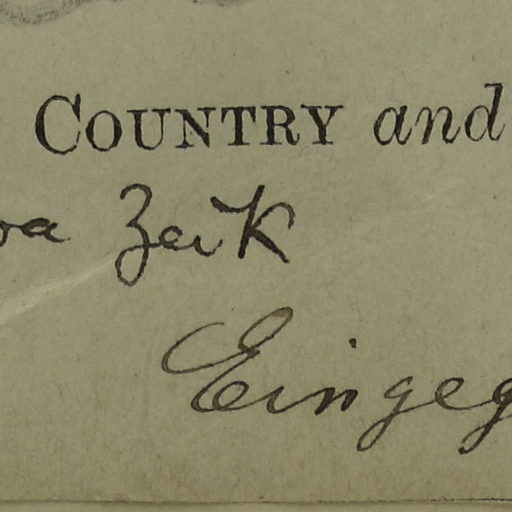 COUNTRY and
Zeik
Eingeg